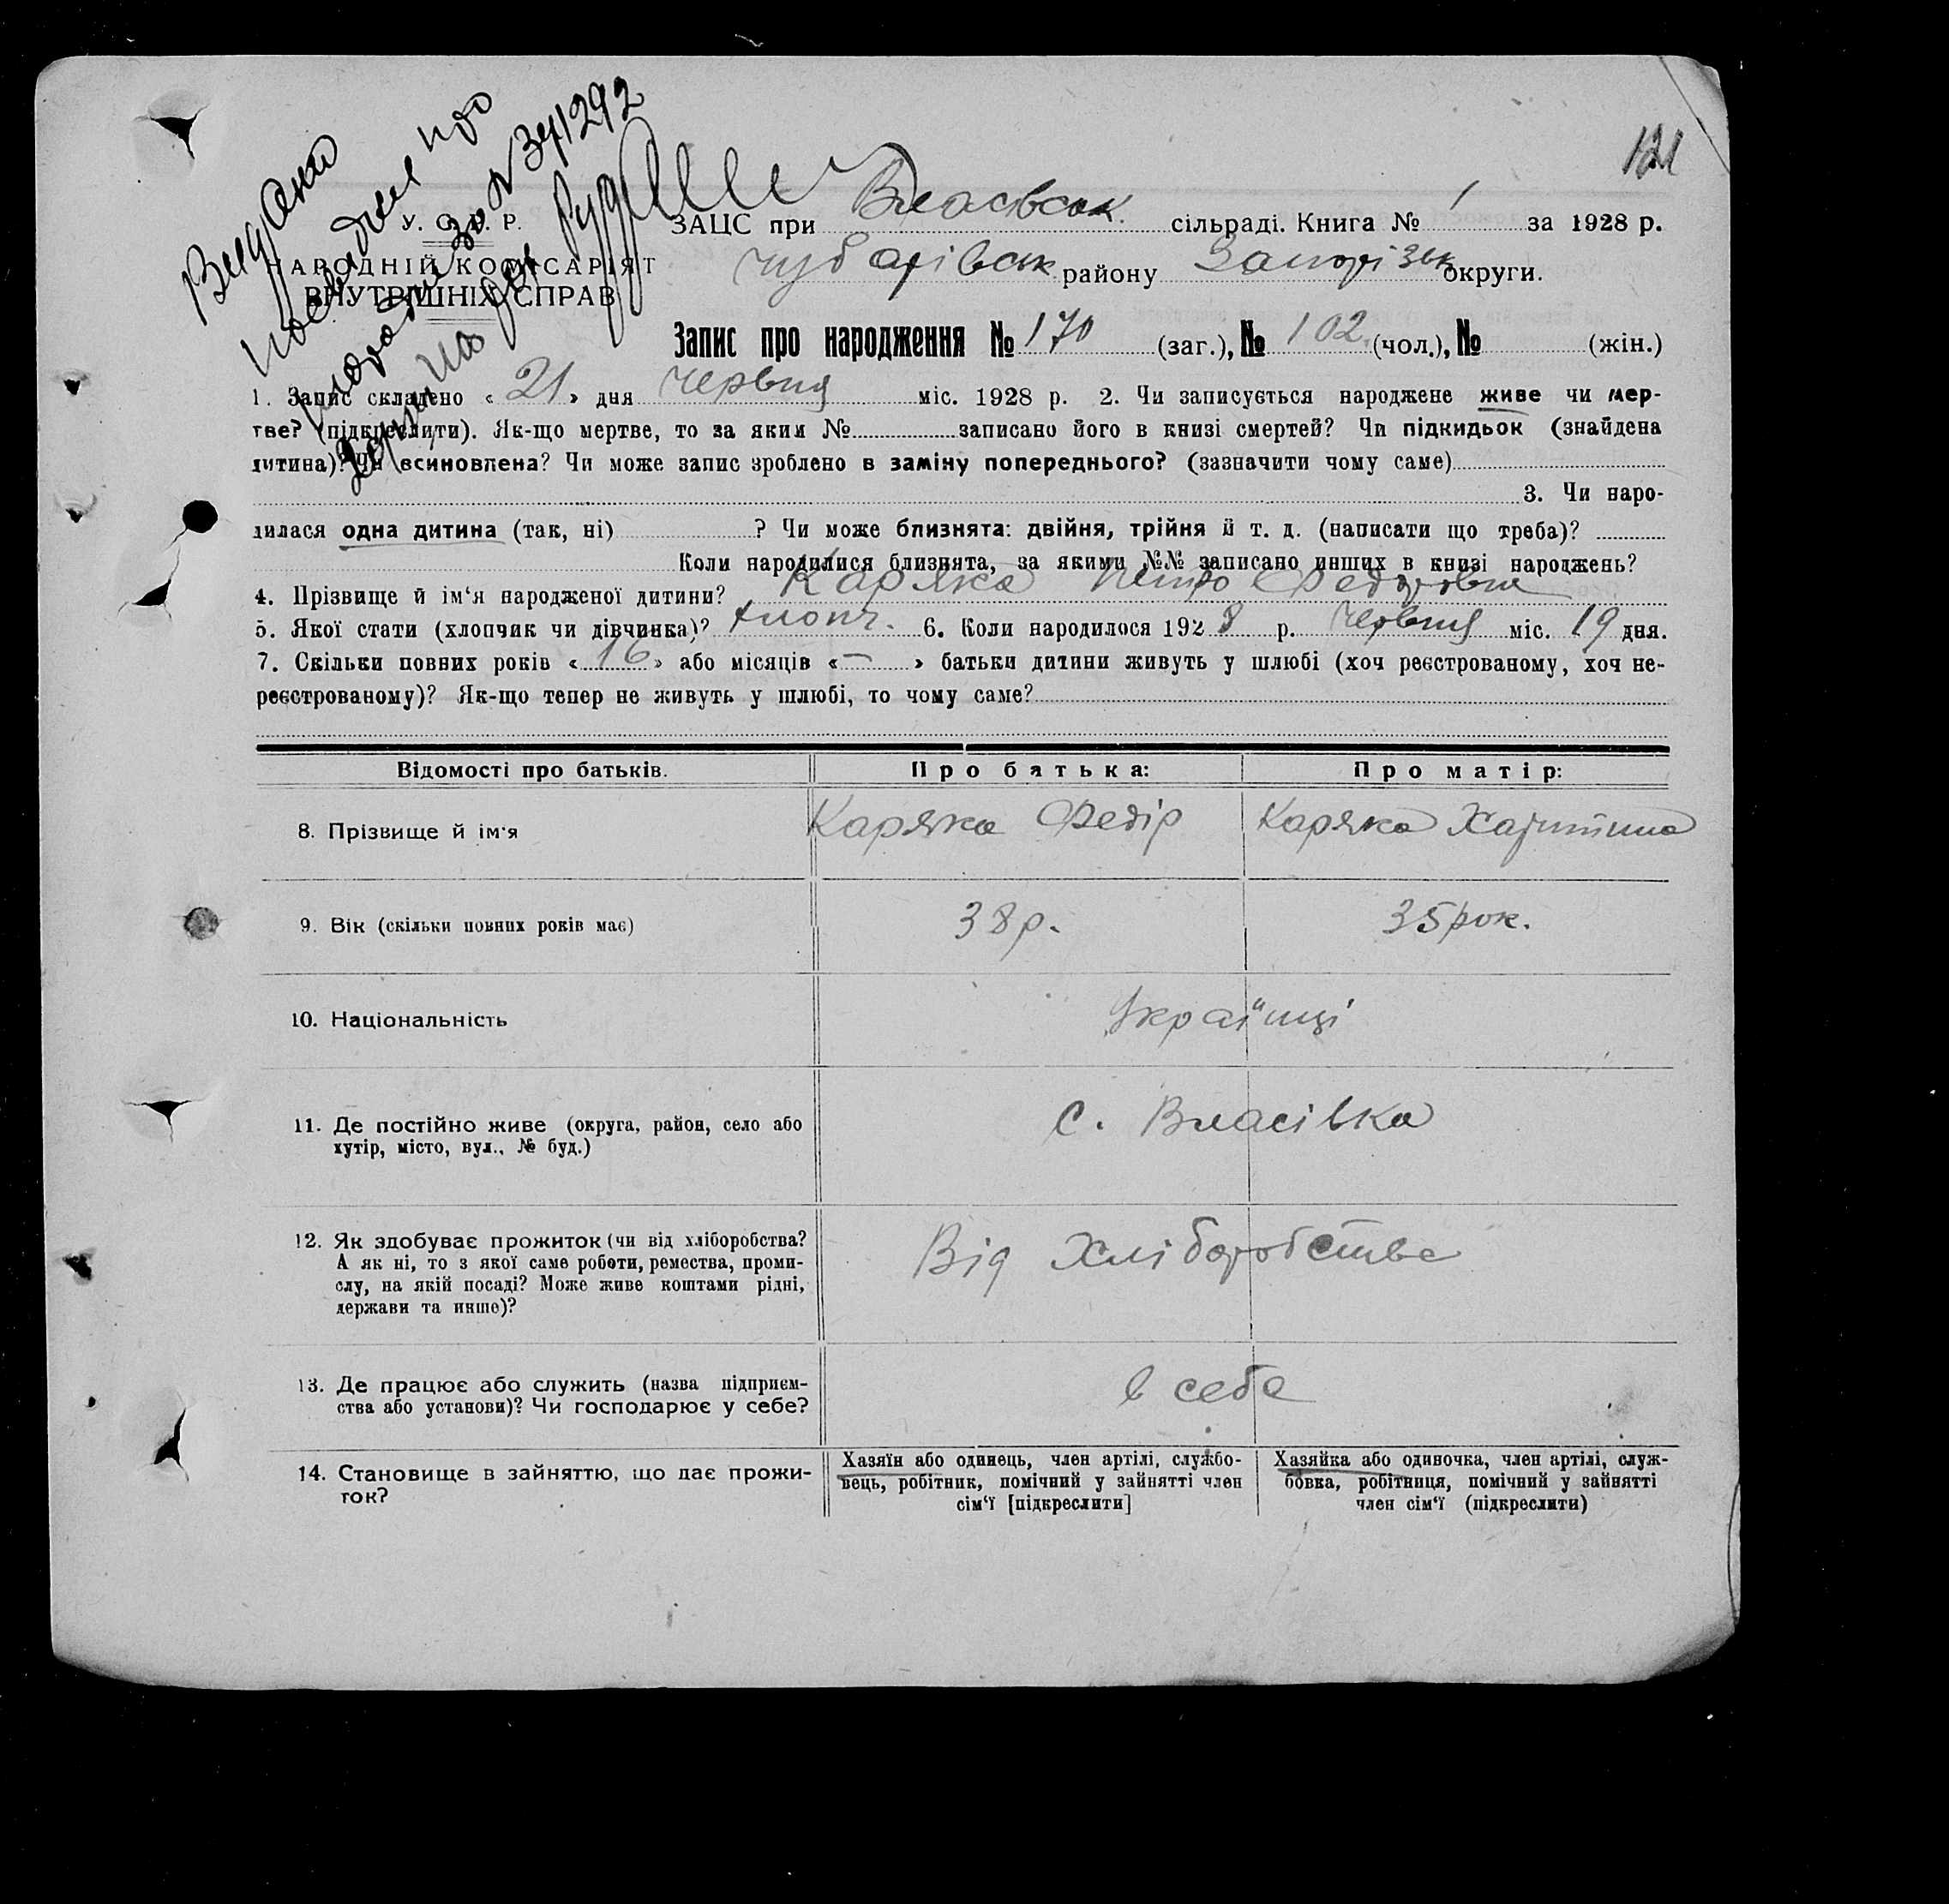 121
Видано
посвідчен про
народж за № 34/1292
У. С. Р. Р.
НАРОДНІЙ КОМІСАРІЯТ
ВНУТРІШНІХ СПРАВ
ЗАЦС при Власівськ. сільраді. Книга № 1 за 1928 р.
Чубарівськ району Запорізьк округи.
Запис про народження № 170 (заг.), № 102 (чол.), № (жін.)
1. Запис складено « 21 » дня Червня міс. 1928 р. 2. Чи записується народжене живе чи мер-
тве? (підкреслити). Як-що мертве, то за яким № записано його в книзі смертей? Чи підкидьок (знайдена
дитина)? Чи всиновлена? Чи може запис зроблено в заміну попереднього? (зазначити чому саме)
3. Чи наро-
дилася одна дитина (так, ні) ? Чи може близнята: двійня, трійня й т. д. (написати що треба)?
Коли народилися близнята, за якими №№ записано инших в книзі народжень?
4. Прізвище й ім‘я народженої дитини? Каряка Петро Федорович
5. Якої стати (хлопчик чи дівчинка)? хлопч. 6. Коли народилося 1928 р. Червня міс. 19 дня.
7. Скільки повних років « 16 » або місяців « — » батьки дитини живуть у шлюбі (хоч реєстрованому, хоч не-
реєстрованому)? Як-що тепер не живуть у шлюбі, то чому саме?
Відомості про батьків. Про батька: Про матір:
8. Прізвище й ім‘я Каряка Федір Каряка Харитина
9. Вік (скільки повних років має) 38 р. 35 рок.
10. Національність Українці
11. Де постійно живе (округа, район, село або
хутір, місто, вул., № буд.)
с. Власівка
12. Як здобуває прожиток (чи від хліборобства?
А як ні, то з якої саме роботи, ремества, проми-
слу, на якій посаді? Може живе коштами рідні,
держави та инше)?
Від Хліборобства
13. Де працює або служить (назва підприєм-
ства або установи)? Чи господарює у себе?
в себе
14. Становище в зайняттю, що дає прожи-
ток?
Хазяїн або одинець, член артілі, службо-
вець, робітник, помічний у зайнятті член
сім‘ї [підкреслити]
Хазяйка або одиночка, член артілі, служ-
бовка, робітниця, помічний у зайнятті
член сім‘ї (підкреслити)